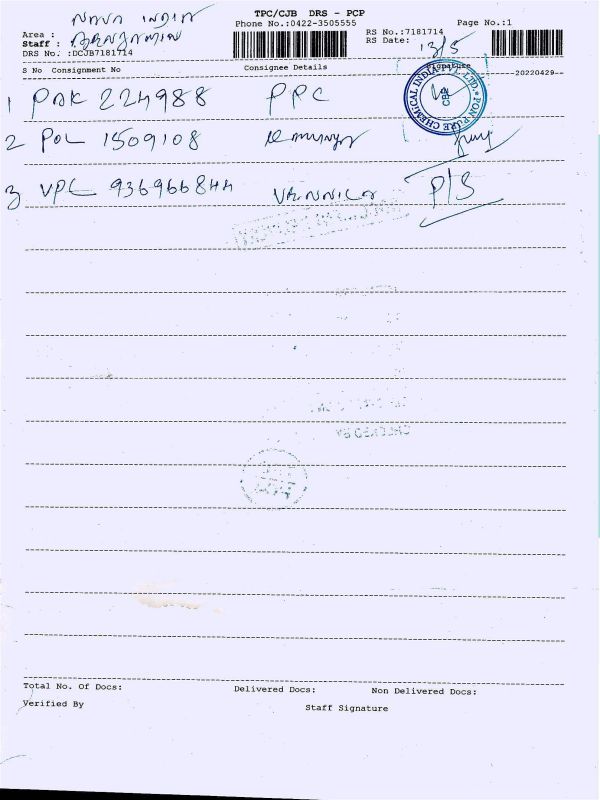 TPC/CJB DRS - PCP
NAVA INDIA
Phone No.:0422-3505555
Page No.:1
Area :
RS No.:7181714
Staff :
RS Date: 13/5
DRS No. :DCJB7181714
S No Consignment No
Consignee Details
Signature
20220429
PON PURE CHEMICAL INDIA PVT. LTD.
CBE
1 PDK 224988 PPC
2 POL 1509108
3 VPL 936966844 VANNILA P/S
CHECKED BY
Total No. Of Docs:
Delivered Docs:
Non Delivered Docs:
Verified By
Staff Signature